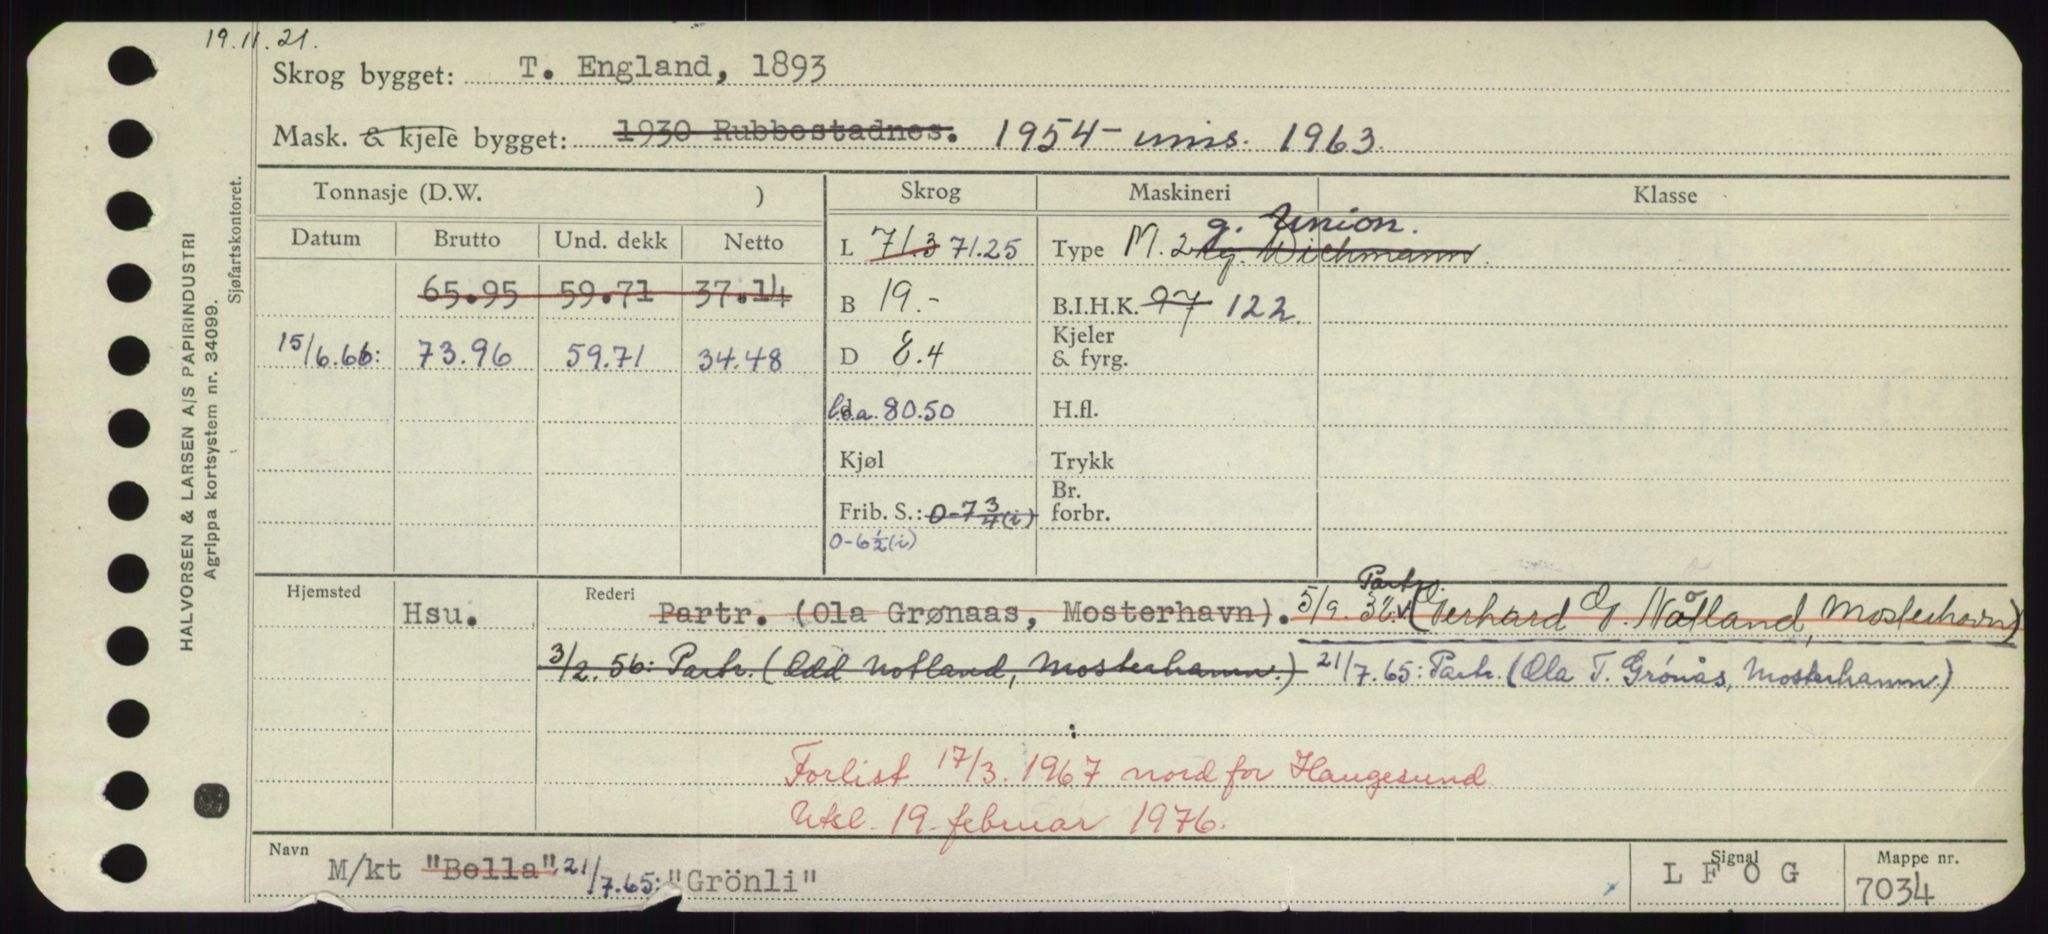 19.11.21.
Skrog bygget: T. England, 1893
Mask. & kjele bygget: 1930 Rubbestadnes. 1954 - inns. 1963.
HALVORSEN & LARSEN A/S PAPIRINDUSTRI
Agrippa kortsystem nr. 34099.
Sjøfartskontoret.
Tonnasje (D.W. ) Skrog Maskineri Klasse
Datum Brutto Und. dekk Netto
L 71.3 71.25 Type M. 2 g. Wichmann g. Union.
65.95 59.71 37.14 B 19.- B.I.H.K. 97 122.
15/6.66: 73.96 59.71 34.48 D 8.4 Kjeler & fyrg.
l.o.a. 80.50 H.fl.
Kjøl Trykk
Frib. S.: 0-7 3/4 (i) Br. forbr.
0-6 1/2 (i)
Hjemsted Hsu. Rederi Partr. (Ola Grønaas, Mosterhavn). 5/9. Partr. (Gerhard O. Nåtland, Mosterhavn)
3/2.56: Partr. (Odd Notland, Mosterhamn.) 21/7.65: Partr. (Ola T. Grønås, Mosterhamn.)
:
Forlist 17/3. 1967 nord for Haugesund
Utkl. 19. februar 1976.
Navn M/kt "Bella", 21/7.65: "Grönli" Signal L F O G Mappe nr. 7034